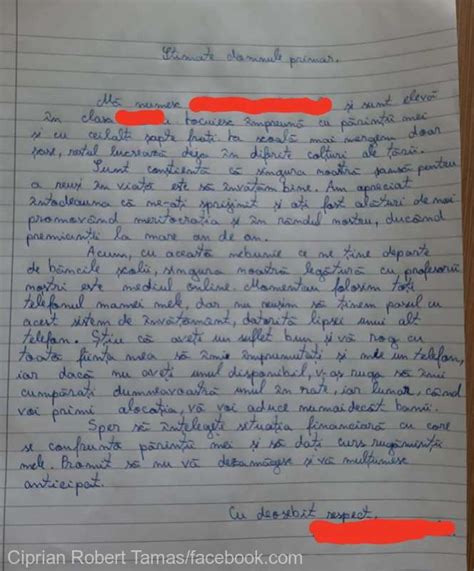 Stimate domnule primar,
Mă numesc și sunt elevă
în clasa locuiesc împreună cu părinții mei
și cu ceilalți șapte frați. La școală mai mergem doar
șase, restul lucrează deja în diferite colțuri ale țării.
Sunt conștientă că singura noastră șansă pentru
a reuși în viață este să învățăm bine. Am apreciat
întodeauna că ne-ați sprijinit și ați fost alături de noi
promovând meritocrația și în rândul nostru, ducând
premianții la mare an de an.
Acum, cu această nebunie ce ne ține departe
de băncile școlii, singura noastră legătură cu profesorii
noștri este mediul online. Momentan folosim toți
telefonul mamei mele, dar nu reușim să ținem pasul cu
acest sistem de învățământ, datorită lipsei unui alt
telefon. Știu că aveți un suflet bun și vă rog cu
toată ființa mea să îmi împrumutați și mie un telefon,
iar dacă nu aveți unul disponibil, v-aș ruga să îmi
cumpărați dumneavoastră unul în rate, iar lunar, când
voi primi alocația, vă voi aduce numaidecât banii.
Sper să înțelegeți situația financiară cu care
se confruntă părinții mei și să dați curs rugăminții
mele. Promit să nu vă dezamăgesc și vă mulțumesc
anticipat.
Cu deosebit respect,
Ciprian Robert Tamas/facebook.com